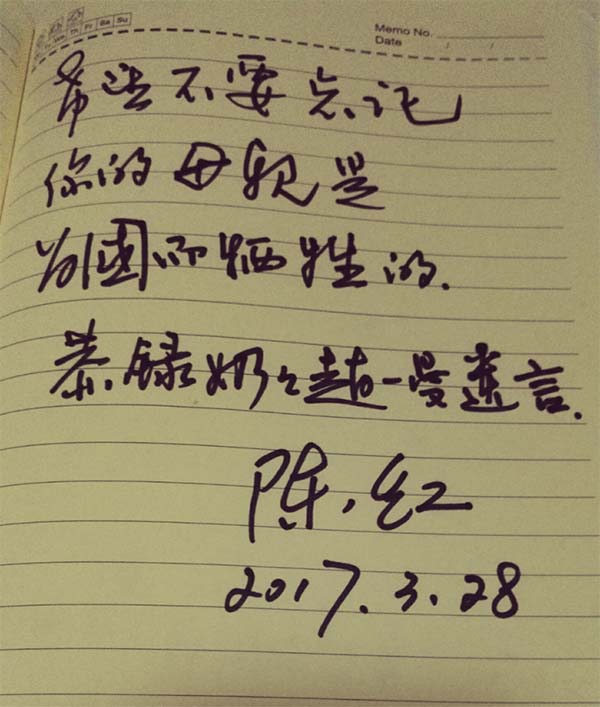 We Th Fr Sa Su
Memo No.
Date / /
希望不要忘记
你的母亲是
为國而牺牲的.
恭录奶々趙一曼遗言.
陈红
2017.3.28